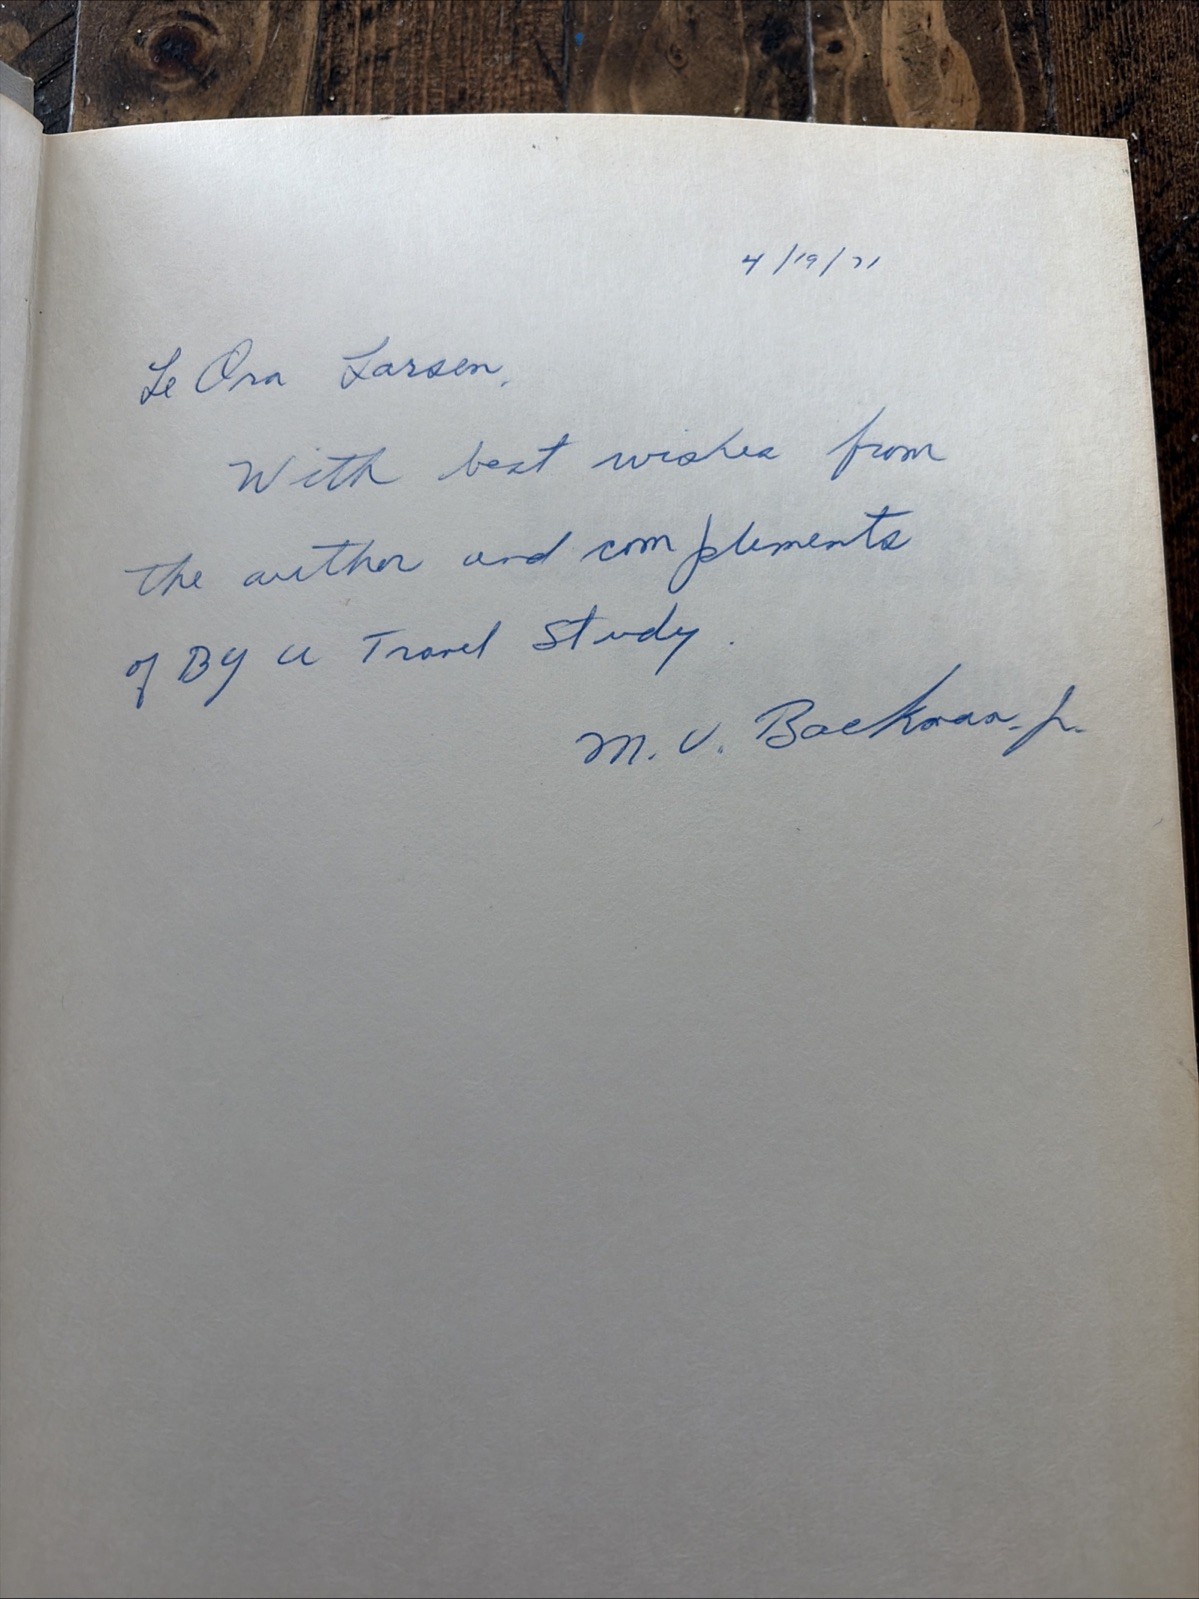 4/19/71
Le Ora Larsen,
With best wishes from
the author and complements
of BYU Travel Study.
M. V. Backman Jr.